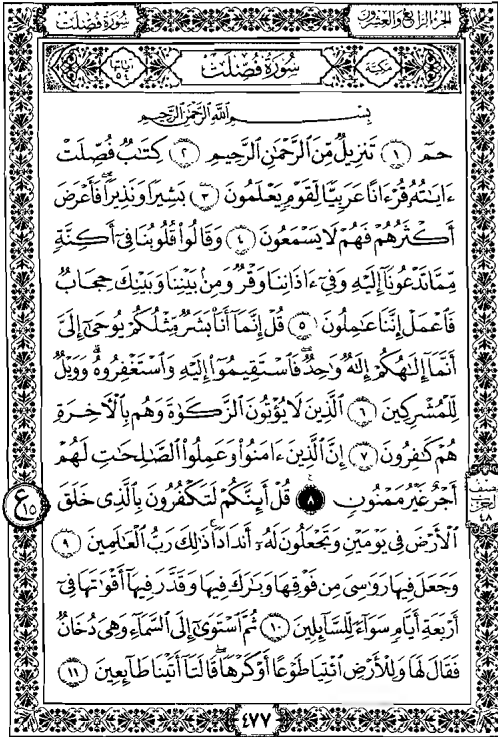 سُورَةُ فُصِّلَتْ الجزء الرابع والعشرون
مكية سُورَةُ فُصِّلَتْ آياتها ٥٤
بِسْمِ ٱللَّهِ ٱلرَّحْمَٰنِ ٱلرَّحِيمِ
حمٓ ١ تَنزِيلٌ مِّنَ ٱلرَّحْمَٰنِ ٱلرَّحِيمِ ٢ كِتَٰبٌ فُصِّلَتْ
ءَايَٰتُهُۥ قُرْءَانًا عَرَبِيًّا لِّقَوْمٍ يَعْلَمُونَ ٣ بَشِيرًا وَنَذِيرًا فَأَعْرَضَ
أَكْثَرُهُمْ فَهُمْ لَا يَسْمَعُونَ ٤ وَقَالُوا۟ قُلُوبُنَا فِىٓ أَكِنَّةٍ
مِّمَّا تَدْعُونَآ إِلَيْهِ وَفِىٓ ءَاذَانِنَا وَقْرٌ وَمِنۢ بَيْنِنَا وَبَيْنِكَ حِجَابٌ
فَٱعْمَلْ إِنَّنَا عَٰمِلُونَ ٥ قُلْ إِنَّمَآ أَنَا۠ بَشَرٌ مِّثْلُكُمْ يُوحَىٰٓ إِلَىَّ
أَنَّمَآ إِلَٰهُكُمْ إِلَٰهٌ وَٰحِدٌ فَٱسْتَقِيمُوٓا۟ إِلَيْهِ وَٱسْتَغْفِرُوهُ ۗ وَوَيْلٌ
لِّلْمُشْرِكِينَ ٦ ٱلَّذِينَ لَا يُؤْتُونَ ٱلزَّكَوٰةَ وَهُم بِٱلْءَاخِرَةِ
هُمْ كَٰفِرُونَ ٧ إِنَّ ٱلَّذِينَ ءَامَنُوا۟ وَعَمِلُوا۟ ٱلصَّٰلِحَٰتِ لَهُمْ
أَجْرٌ غَيْرُ مَمْنُونٍ ٨ قُلْ أَئِنَّكُمْ لَتَكْفُرُونَ بِٱلَّذِى خَلَقَ
ٱلْأَرْضَ فِى يَوْمَيْنِ وَتَجْعَلُونَ لَهُۥٓ أَندَادًا ۚ ذَٰلِكَ رَبُّ ٱلْعَٰلَمِينَ ٩
وَجَعَلَ فِيهَا رَوَٰسِىَ مِن فَوْقِهَا وَبَٰرَكَ فِيهَا وَقَدَّرَ فِيهَآ أَقْوَٰتَهَا فِىٓ
أَرْبَعَةِ أَيَّامٍ سَوَآءً لِّلسَّآئِلِينَ ١٠ ثُمَّ ٱسْتَوَىٰٓ إِلَى ٱلسَّمَآءِ وَهِىَ دُخَانٌ
فَقَالَ لَهَا وَلِلْأَرْضِ ٱئْتِيَا طَوْعًا أَوْ كَرْهًا قَالَتَآ أَتَيْنَا طَآئِعِينَ ١١
ع ١٥
٤٧٧